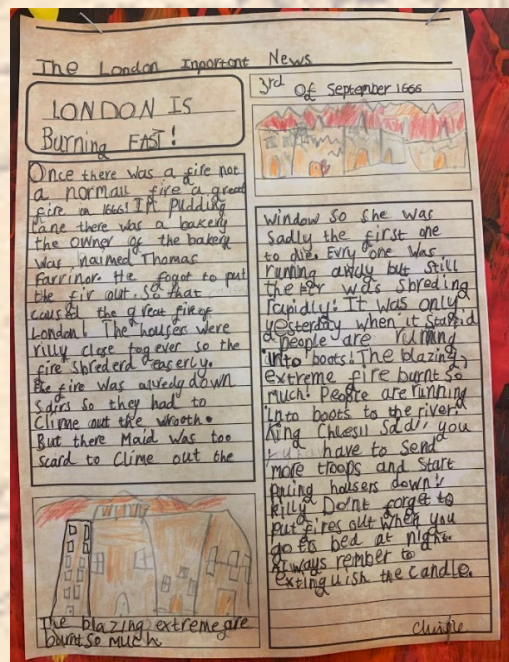 The London Inportant News
LONDON IS
Burning FAST!
Once there was a fire not
a normall fire a great
fire in 1666! In Pudding
Lane there was a bakery
the owner of the bakery
was naimed Thomas
Farrinor. He fogot to put
the fir out. So that
caused the great fire of
London! The housers were
rilly close togever so the
fire Sbrederd easerly.
the fire was alredy down
Sairs so they had to
Clime out the
But there Maid was too
scard to Clime out the
The blazing extreme are
burnt so much
3rd Of September 1666
window So she was
Sadly the first one
to die. Evry one was
running away but still
the was sbreding
rapidly! It was only
yesterday when it
people are runing
into boots! The blazing
extreme fire burnt so
much! People are running
into boots to the river!
King Sad you
have to Send
more troops and start
puling housers down!
Do'nt forget to
put fires out when you
go to bed at night.
Always rember to
extinguish the candle.